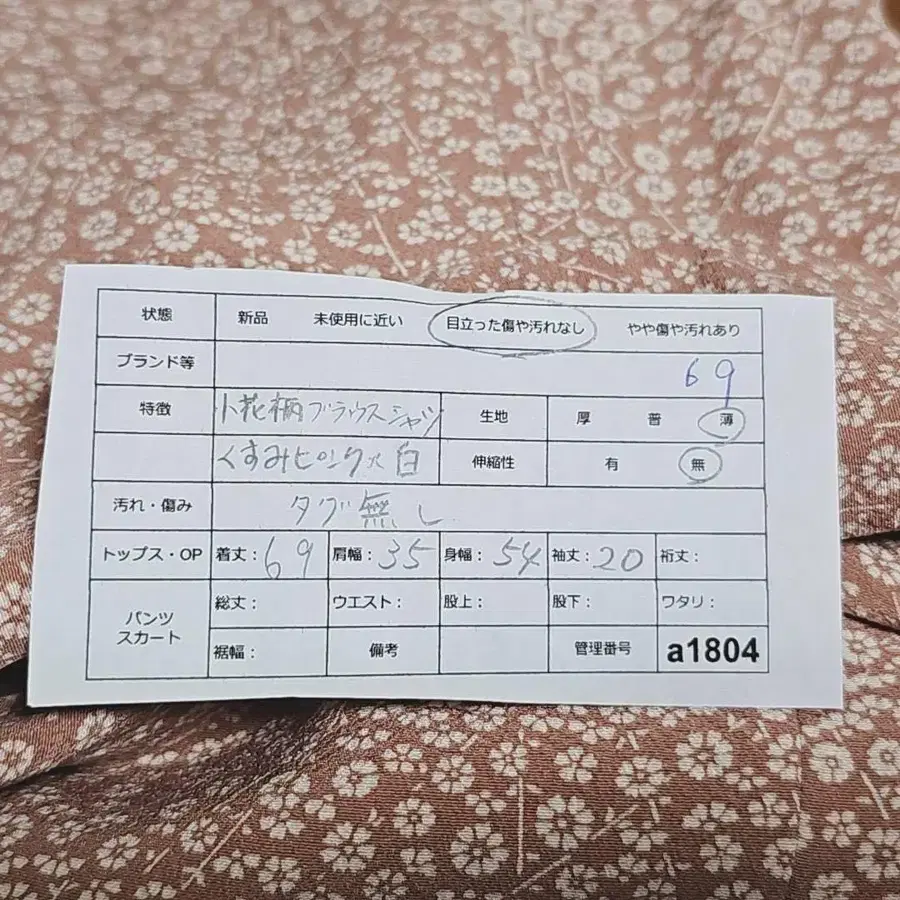 状態 新品 未使用に近い 目立った傷や汚れなし やや傷や汚れあり
ブランド等 69
特徴 小花柄ブラウスシャツ 生地 厚 普 薄
くすみピンク×白 伸縮性 有 無
汚れ・傷み タグ無し
トップス・OP 着丈：69 肩幅：35 身幅：54 袖丈：20 裄丈：
パンツ スカート 総丈： ウエスト： 股上： 股下： ワタリ：
裾幅： 備考 管理番号 a1804